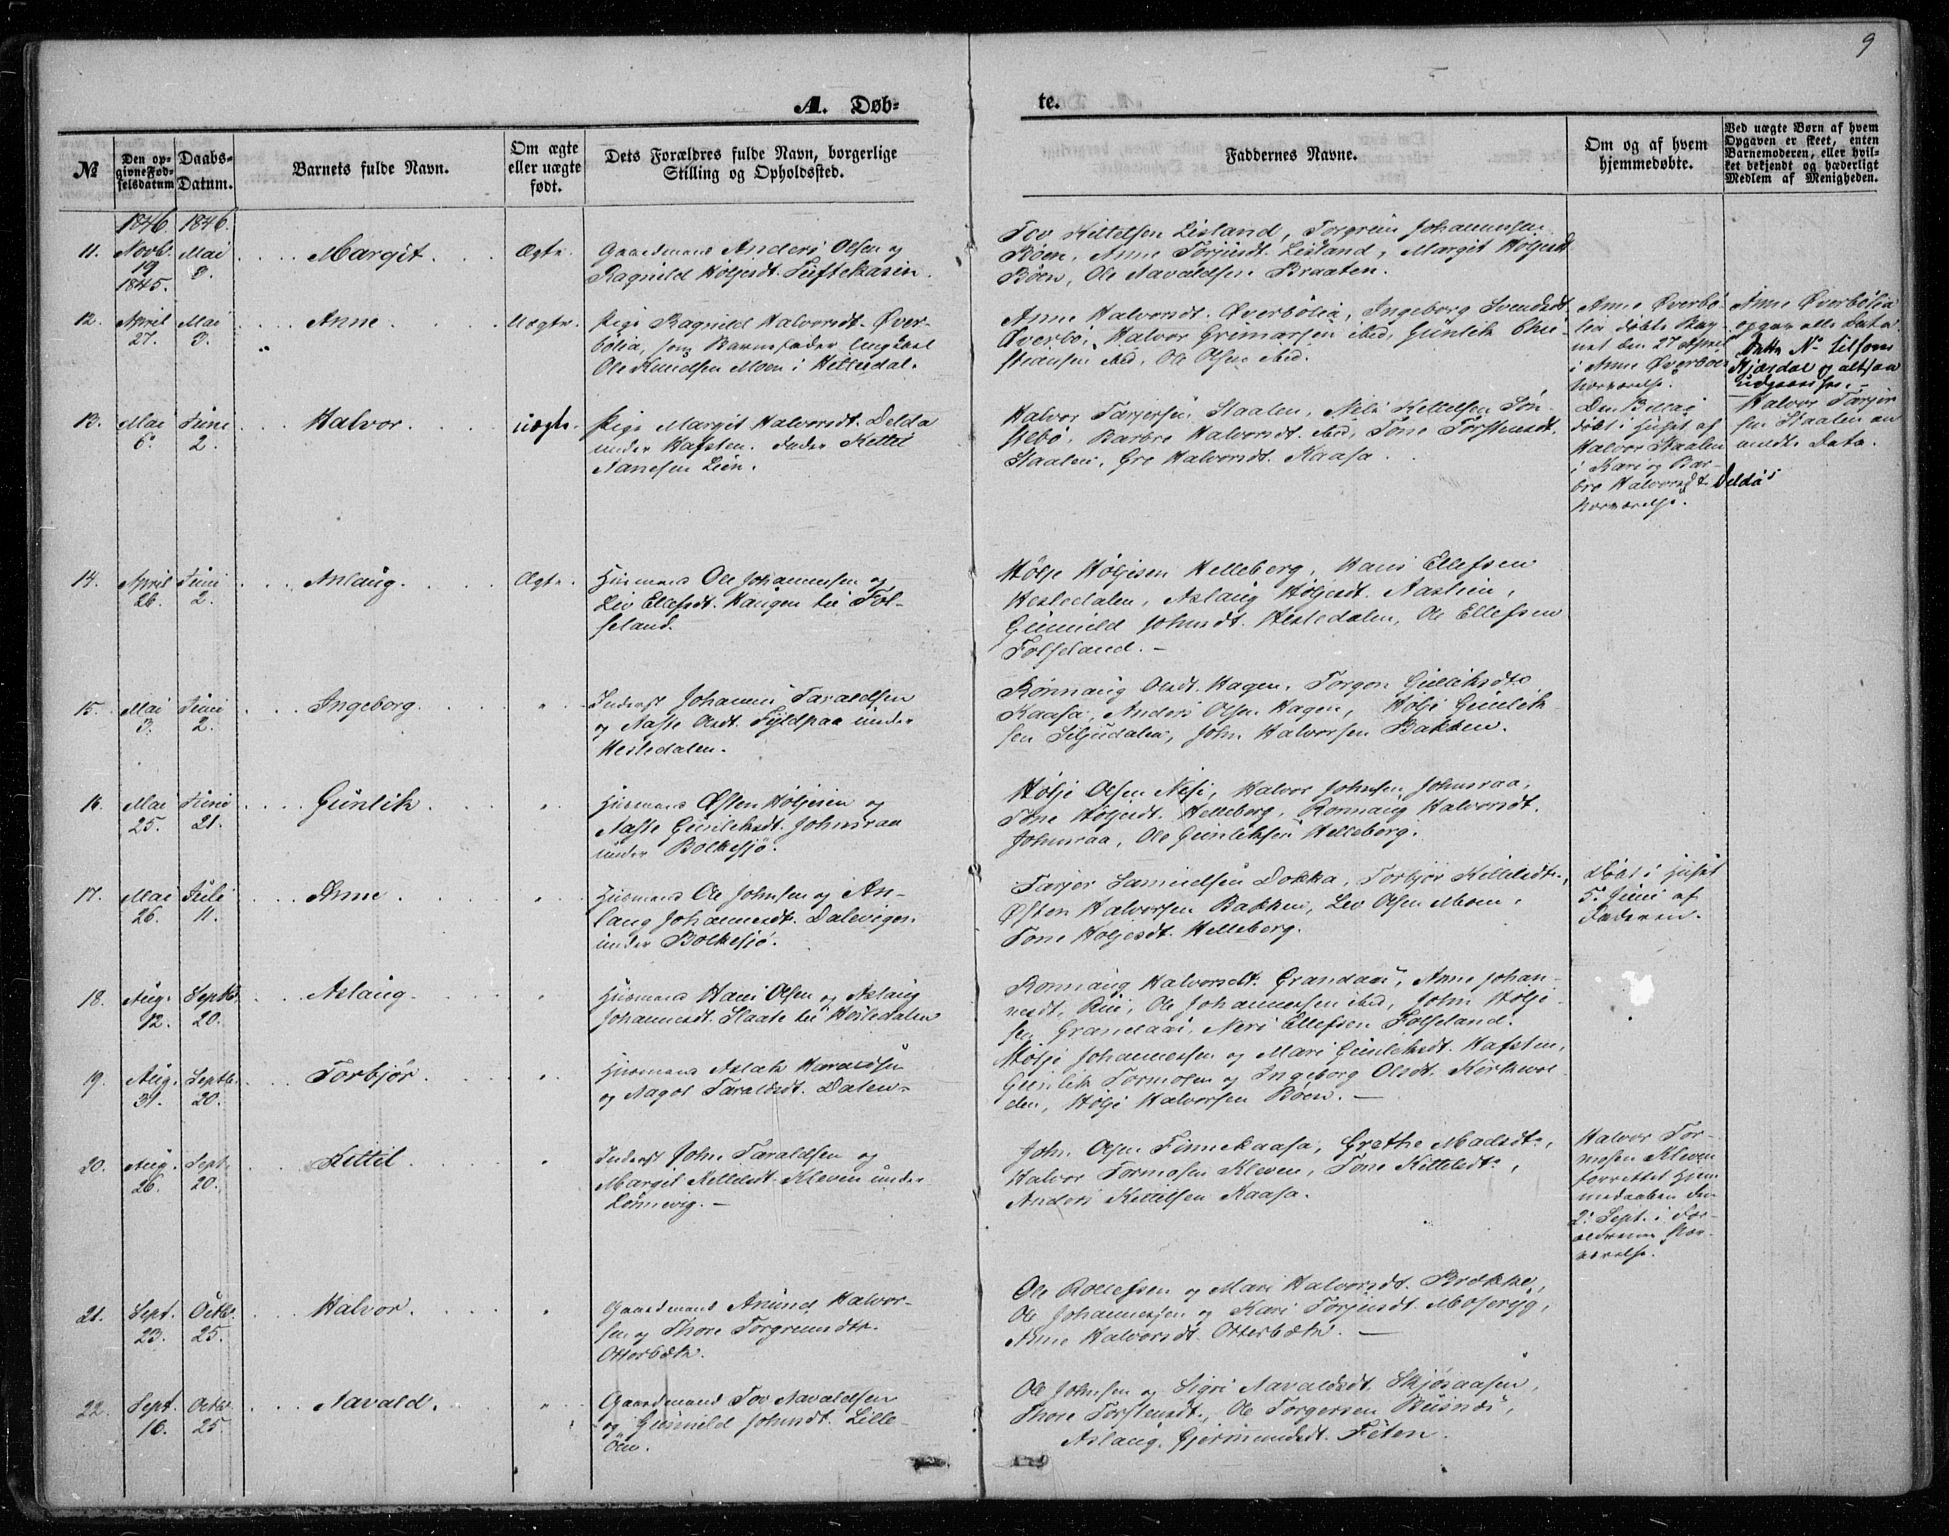 9
A. Døb-
te.
№
Den op-
givne Fød-
selsdatum
Daabs-
Datum.
Barnets fulde Navn.
Om ægte
eller uægte
født.
Dets Forældres fulde Navn, borgerlige
Stilling og Opholdssted.
Faddernes Navne.
Om og af hvem
hjemmedøbte.
Ved uægte Børn af hvem
Opgaven er skeet, enten
Barnemoderen, eller hvil-
ket bekjendt og hæderligt
Medlem af Menigheden.
1846. 1846.
11. Novb. 19 1845. Mai 3. Margit. Ægte.
Gaardmand Anders Olsen og
Ragnild Høljesdt. Tuftekasin.
Tov Kittelsen Lisland, Torgrim Johannessen
Bøen, Anne Torjusdt. Lisland, Margit Høljesdt.
Bøen, Ole Aavaldsen Braaten.
12. April 27. Mai 3. Anne. Uægte.
Pige Ragnild Halvorsdt. Øver-
bølia, som Barnefader Ungkarl
Ole Knudsen Moen i Hittedal.
Anne Halvorsdt. Øverbølia, Ingeborg Svendsdt.
Øverbø, Halvor Grimarsen ibid, Gunlik Chri-
stiansen ibid, Ole Olsen ibid.
Anne Øverbø-
lia døbte Bar-
net den 27 April
i Anne Øverbøes
Nærværelse.
Anne Øverbølia
opgav alle Data
Dette No tilføres
Hjærdal og altsaa
udgaar her. -
13. Mai 6. Juni 2. Halvor. uægte.
Pige Margit Halvorsdt. Delda
under Hafsten. Fader Kittil
Nanesen Lien.
Halvor Tarjersen Staalen, Nils Kittelsen Søn-
stebø, Barbro Halvorsdt. ibid, Tone Torstensdt.
Staalen, Gro Halvorsdt. Kaasa.
døbt i Huset af
Halvor Staalen
i Kari og Bar-
bro Halvorsdt. Deldas
Nærværelse.
Halvor Tarjer-
sen Staalen an
meldte Data.
14. April 26. Juni 2. Anlaug. Ægte.
Husmand Ole Johannessen og
Liv Ellefsdt. Haugen til Fol-
seland.
Hølje Høljesen Helleberg, Hans Ellefsen
Hesledalen, Aslaug Høljesdt. Aaslien,
Gunnild Johnsdt. Hesledalen, Ole Ellefsen
Folseland. -
15. Mai 3. Juni 2. Ingeborg. "
Inderst Johannes Taraldsen
og Aaste Olsdt. Fyldpaa under
Hesledalen.
Rønnaug Olsdt. Hagen, Torgon Gunliksdt.
Kaasa, Anders Olsen Hagen, Hølje Gunlik-
sen Siljudalen, John Halvorsen Bakken.
16. Mai 25. Juni 21. Gunlik. "
Husmand Østen Høljesen og
Aaste Gunleksdt. Johnsraa
under Bolkesjø.
Hølje Olsen Nesi, Halvor Johnsen Johnsraa,
Tone Høljesdt. Helleberg, Rønnaug Halvorsdt.
Johnsraa, Ole Gunliksen Helleberg.
17. Mai 26. Juli 11. Anne. "
Husmand Ole Johnsen og An-
laug Johannesdt. Dalevigen
under Bolkesjø.
Tarjer Samuelsen Dokka, Torbjør Kittilsdt.,
Østen Halvorsen Bakken, Lev Olsen Moen,
Tone Høljesdt. Helleberg.
Døbt i Huset
5. Juni af
Faderen.
18. Aug. 12. Septb. 20. Aslaug. "
Husmand Hans Olsen og Aslaug
Johannesdt. Slaate til Hesledalen
Rønnaug Halvorsdt. Grandaas, Anne Johan-
nesdt. Rui, Ole Johannessen ibid, John Hølje-
sen Grandaas, Neri Ellefsen Folseland.
19. Aug. 31. Septb. 20. Torbjør. "
Husmand Aslak Haraldsen
og Aagot Taraldsdt. Dalen.
Hølje Johannessen og Mari Gunleksdt. Hafsten,
Gunlik Tormosen og Ingeborg Olsdt. Kirkevol-
den, Hølje Halvorsen Bøen. -
20. Aug. 26. Sept. 20. Kittil. "
Inderst John Taraldsen og
Margit Kittilsdt. Kleven under
Lønnevig. -
John Olsen Finnekaasa, Grethe Madsdt.,
Halvor Tormosen Kleven, Tone Kittilsdt.,
Anders Kittilsen Kaasa.
Halvor Tor-
mosen Kleven
forrettet Hjem-
medaaben den
2. Sept. i For-
ældrenes Nær-
værelse.
21. Sept. 23. Octbr. 25. Halvor. "
Gaardmand Anund Halvor-
sen og Thore Torgrimsdt.
Otterbæk.
Ole Rollefsen og Mari Halvorsdt. Brække,
Ole Johannessen og Kari Torjusdt. Moseryg,
Anne Halvorsdt. Otterbæk. -
22. Sept. 16. Octbr. 25. Aavald. "
Gaardmand Tov Aavaldsen
og Gunnild Johnsdt. Lille-
Øen.
Ole Johnsen og Sigri Aavaldsdt. Skjøsaasen,
Thore Torstensdt., Ole Torgersen Busnes,
Aslaug Gjermundsdt. Foten.